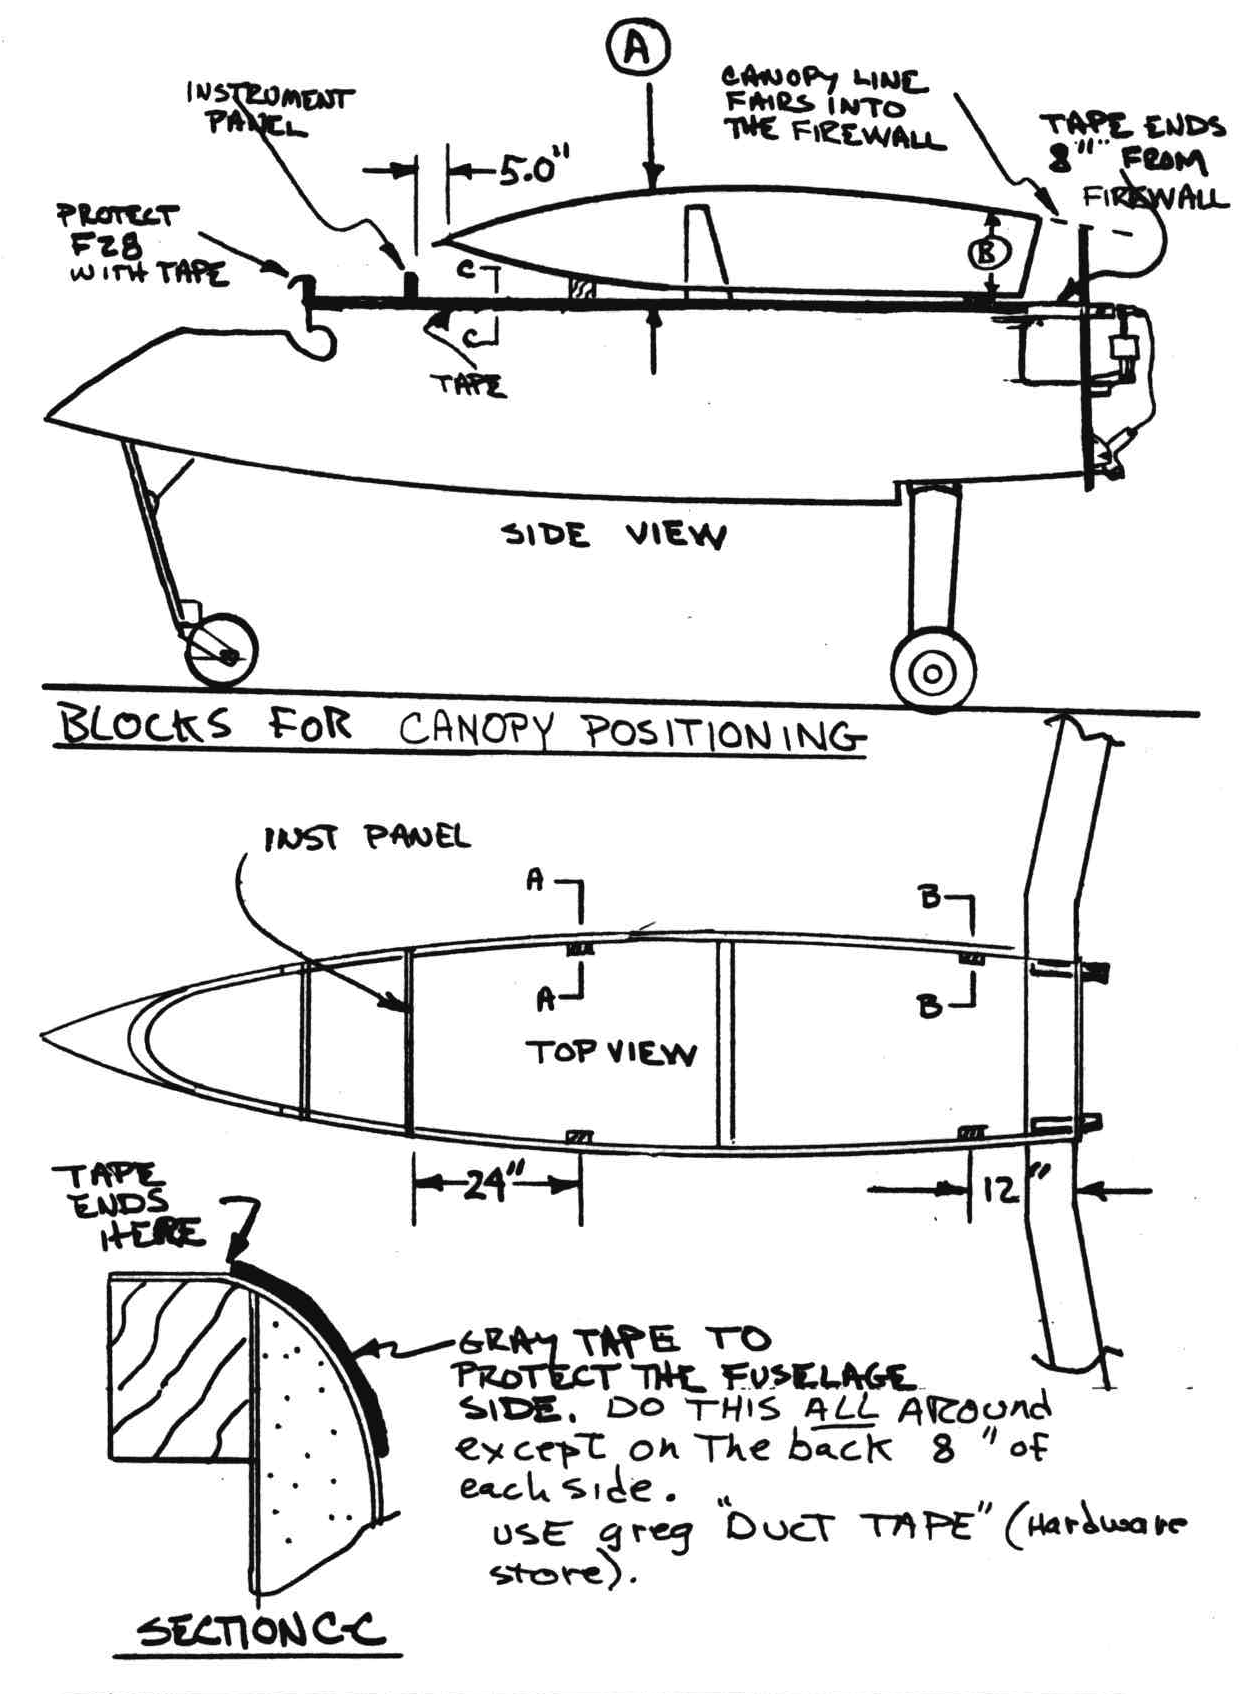 A
INSTRUMENT
PANEL
CANOPY LINE
FAIRS INTO
THE FIREWALL
TAPE ENDS
8"" FROM
FIREWALL
5.0"
PROTECT
F28
WITH TAPE
B
C
C
TAPE
SIDE VIEW
BLOCKS FOR CANOPY POSITIONING
INST PANEL
A
B
A
B
TOP VIEW
24"
12"
TAPE
ENDS
HERE
GRAY TAPE TO
PROTECT THE FUSELAGE
SIDE. DO THIS ALL AROUND
except on The back 8" of
each side.
USE greg "DUCT TAPE" (Hardware
store).
SECTION C-C